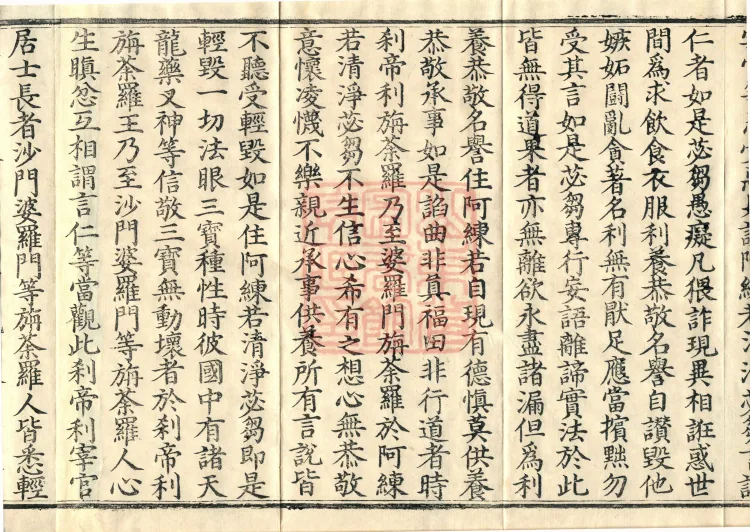 仁者如是苾芻愚癡凡猥詐現異相誑惑世
間爲求飲食衣服利養恭敬名譽自讃毀他
嫉妬鬪亂貪著名利無有猒足應當擯黜勿
受其言如是苾芻專行妄語離諦實法於此
皆無得道果者亦無離欲永盡諸漏但爲利
養恭敬名譽住阿練若自現有德慎莫供養
恭敬承事如是諂曲非真福田非行道者時
利帝利旃荼羅乃至婆羅門旃荼羅於阿練
若清淨苾芻不生信心希有之想心無恭敬
意懷凌懱不樂親近承事供養所有言說皆
不聽受輕毀如是住阿練若清淨苾芻即是
輕毀一切法眼三寶種性時彼國中有諸天
龍藥叉神等信敬三寶無動壞者於刹帝利
旃荼羅王乃至沙門婆羅門等旃荼羅人心
生瞋忿互相謂言仁等當觀此刹帝利宰官
居士長者沙門婆羅門等旃荼羅人皆悉輕